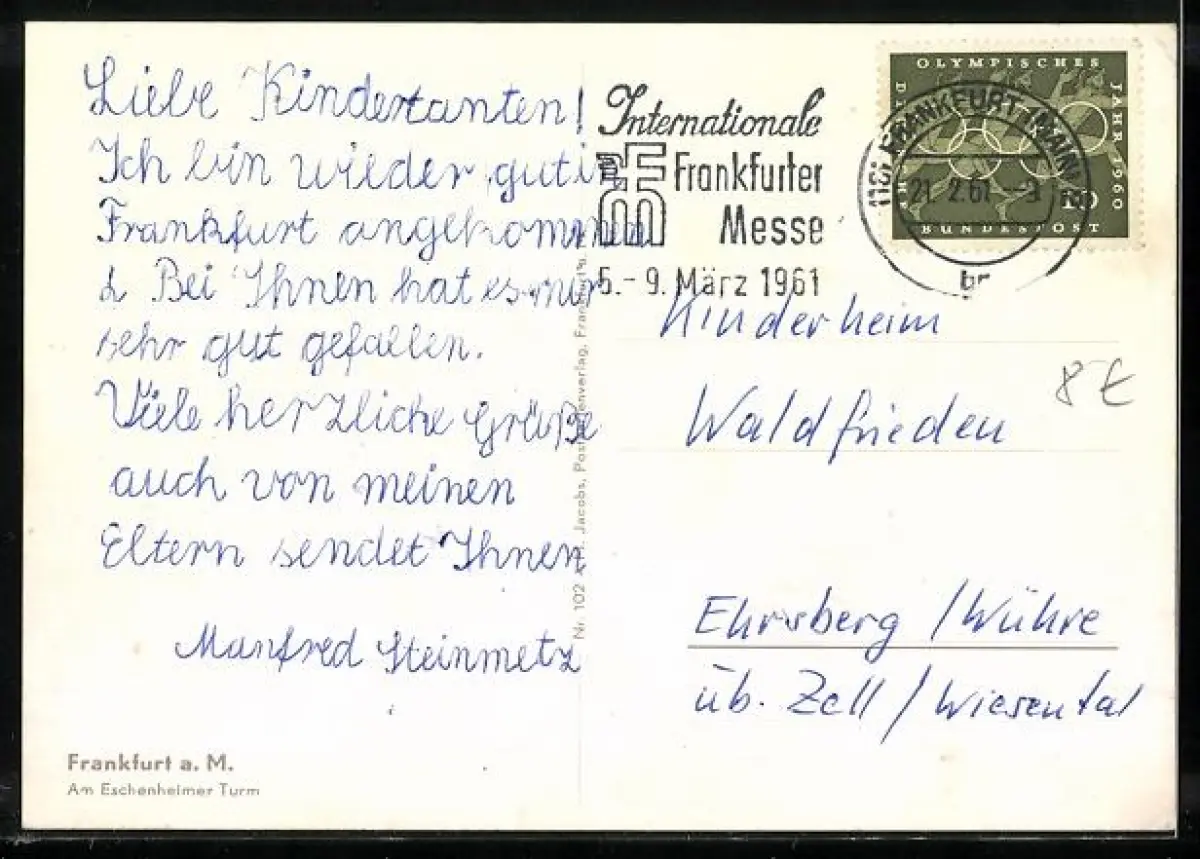 Liebe Kindertanten!
Ich bin wieder gut in
Frankfurt angekommen
Bei Ihnen hat es mir
sehr gut gefallen.
Viele herzliche Grüße
auch von meinen
Eltern sendet Ihnen
Manfred Steinmetz
Frankfurt a. M.
Am Eschenheimer Turm
Nr. 102 Jacobs, Postkartenverlag, Frankfurt a.
Internationale
Frankfurter
Messe
5.-9. März 1961
OLYMPISCHES
JAHR 1960
BUNDESPOST
10
FRANKFURT (MAIN)
21. 2.61
Kinderheim
Waldfrieden
8 €
Ehrsberg / Wühre
üb. Zell / Wiesental